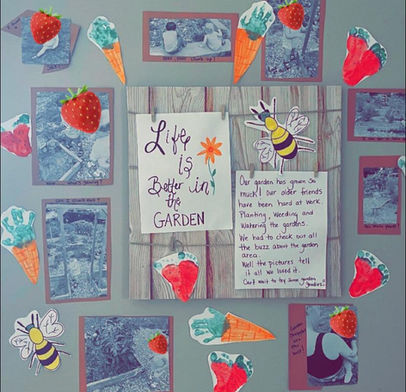 Life
is
Better in
the
GARDEN
Our garden has grown so
much! Our older friends
have been hard at work.
Planting, Weeding and
Watering the gardens.
We had to check out all
the buzz about the garden
area.
Well the pictures tell
it all we loved it.
Can't wait to try some garden
goodies!